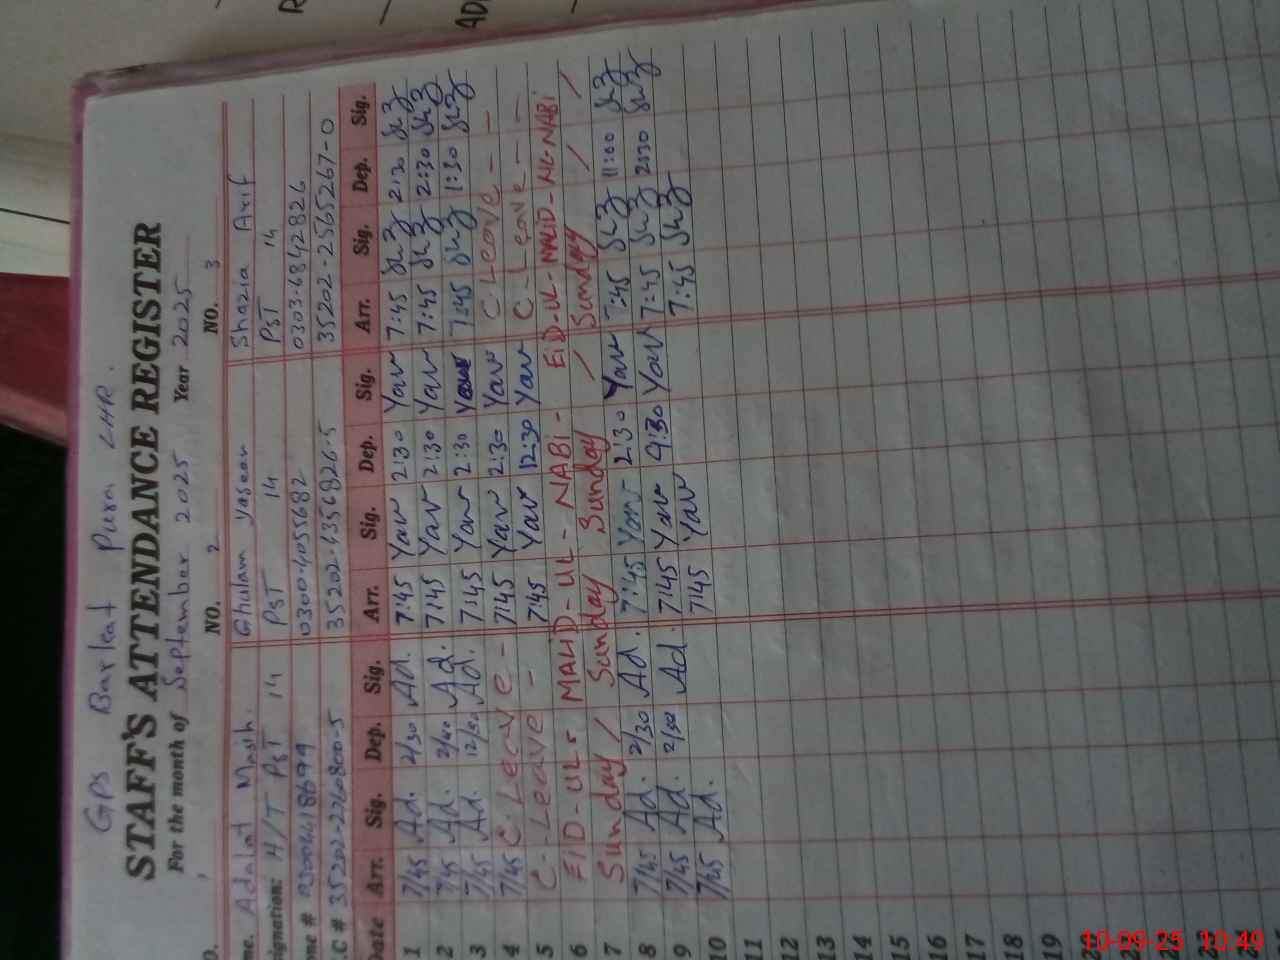 GPS Barkat Pura LHR.
STAFF'S ATTENDANCE REGISTER
For the month of September 2025 Year 2025
NO. 2 NO. 3
Adalat Masih Ghulam Yaseen Shazia Arif
signation: H/T PST 14 PST 14 PST 14
03004418699 0300-4055682 0303-6842826
35202-2568267-0
Date Arr. Sig. Dep. Sig. Arr. Sig. Dep. Sig. Arr. Sig. Dep. Sig.
1 7/45 Ad. 2/30 Ad. 7:45 Yav 2:30 Yav 7:45 2:30
2 7/45 Ad. Ad. 7:45 Yav 2:30 Yav 7:45 2:30
3 7/45 Ad. Ad. 7:45 Yav 2:30 7:45 1:30
4 7/45 C. Leave - 7:45 Yav 2:30 Yav C. Leave -
5 C. Leave - 7:45 Yav 12:30 Yav C. Leave - -
6 EID-UL- MALID-UL-NABI- EID-UL-
7 Sunday / Sunday Sunday / Sunday / /
8 7/45 Ad. 2/30 Ad. 7:45 2:30 Yav 7:45 11:00
9 7/45 Ad. 2/30 Ad. 7:45 Yav 4:30 Yav 7:45 2:30
10 7/45 Ad. 7:45 Yav 7:45
11
12
13
14
15
16
17
18
19
10-09-25 10:49